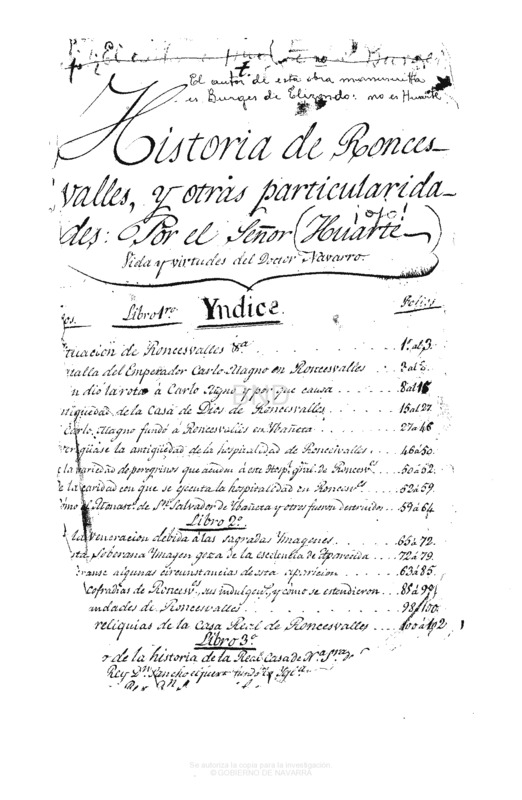 El autor de esta obra manuscrita
es Burges de Elizondo: no es Huarte
Historia de Ronces-
valles, y otras particularida-
des: Por el Señor (Huarte)
¡ojo!
Vida y virtudes del Doctor Navarro
Libro 1ro Yndice. Folios
tuacion de Roncesvalles &a. 1º al 3.
talla del Emperador Carlo Magno en Roncesvalles
n dió la rota á Carlo Magno y por que causa 8 al
tigüedad de la Casa de Dios de Roncesvalles 15 al 27
Carlo Magno fundó á Roncesvalles en Ybañeta 27 a 46
veriguase la antigüedad de la hospitalidad de Roncesvalles 46 a 50.
la caridad de peregrinos que acuden á este Hospl. gral. de Roncesvs. 50 a 52.
e la caridad con que se egecuta la hospitalidad en Roncesvs. 52 a 59.
omo el Monastº. de Sn. Salvador de Ybañeta y otros fueron destruidos 59 a 64
Libro 2º
la veneracion debida á las sagradas Ymagenes 65 a 72.
sta Soberana Ymagen goza de la escelencia de Aparecida 72 a 79.
ranse algunas circunstancias de esta aparicion 63 a 85.
Cofradias de Roncesvs. sus indulgs. y como se estendieron 85 a
ndades de Roncesvalles 98 a 100.
reliquias de la Casa Real de Roncesvalles 100 a 102
Libro 3º
r de la historia de la Real Casa de Nª Srª de
Rey Dn. Sancho el fuerte
Se autoriza la copia para la investigación.
© GOBIERNO DE NAVARRA